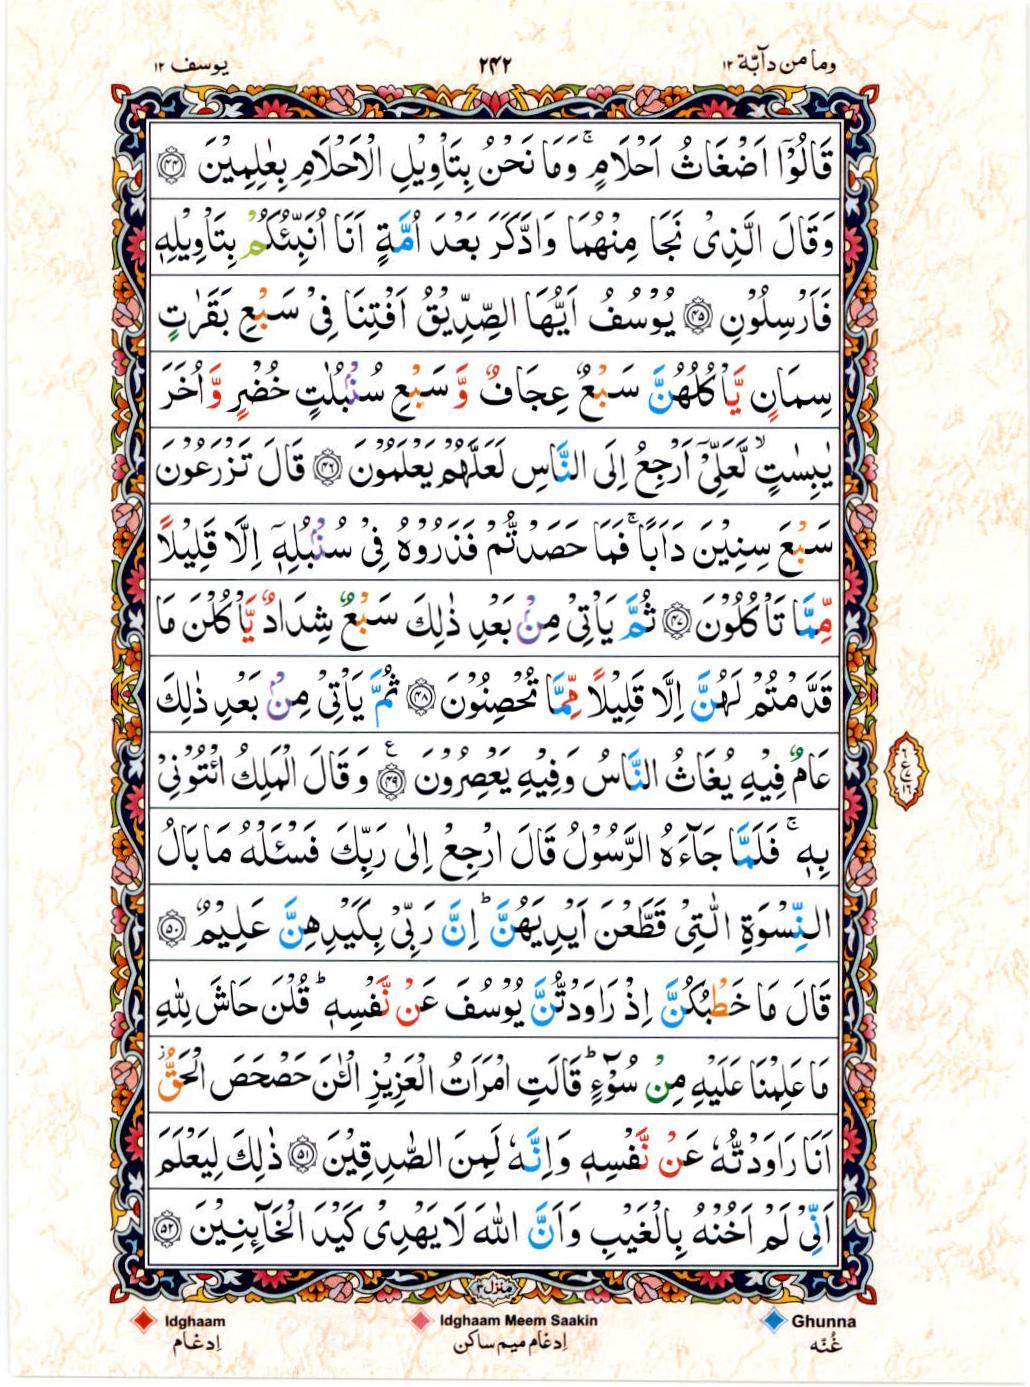 وما من دآبّة ١٢
٢٤٢
يوسف ١٢
قَالُوْۤا اَضْغَاثُ اَحْلَامٍ ۚ وَمَا نَحْنُ بِتَاْوِيْلِ الْاَحْلَامِ بِعٰلِمِيْنَ ﴿۴۴﴾
وَقَالَ الَّذِىْ نَجَا مِنْهُمَا وَادَّكَرَ بَعْدَ اُمَّةٍ اَنَا اُنَبِّئُكُمْ بِتَاْوِيْلِهٖ
فَاَرْسِلُوْنِ ﴿۴۵﴾ يُوْسُفُ اَيُّهَا الصِّدِّيْقُ اَفْتِنَا فِىْ سَبْعِ بَقَرٰتٍ
سِمَانٍ يَّاْكُلُهُنَّ سَبْعٌ عِجَافٌ وَّسَبْعِ سُنْۢبُلٰتٍ خُضْرٍ وَّاُخَرَ
يٰبِسٰتٍ ۙ لَّعَلِّىْۤ اَرْجِعُ اِلَى النَّاسِ لَعَلَّهُمْ يَعْلَمُوْنَ ﴿۴۶﴾ قَالَ تَزْرَعُوْنَ
سَبْعَ سِنِيْنَ دَاَبًا ۚ فَمَا حَصَدْتُّمْ فَذَرُوْهُ فِىْ سُنْۢبُلِهٖۤ اِلَّا قَلِيْلًا
مِّمَّا تَاْكُلُوْنَ ﴿۴۷﴾ ثُمَّ يَاْتِىْ مِنْۢ بَعْدِ ذٰلِكَ سَبْعٌ شِدَادٌ يَّاْكُلْنَ مَا
قَدَّمْتُمْ لَهُنَّ اِلَّا قَلِيْلًا مِّمَّا تُحْصِنُوْنَ ﴿۴۸﴾ ثُمَّ يَاْتِىْ مِنْۢ بَعْدِ ذٰلِكَ
عَامٌ فِيْهِ يُغَاثُ النَّاسُ وَفِيْهِ يَعْصِرُوْنَ ﴿۴۹﴾ ع وَقَالَ الْمَلِكُ ائْتُوْنِىْ
بِهٖ ۚ فَلَمَّا جَآءَهُ الرَّسُوْلُ قَالَ ارْجِعْ اِلٰى رَبِّكَ فَسْـَٔلْهُ مَا بَالُ
النِّسْوَةِ الّٰتِىْ قَطَّعْنَ اَيْدِيَهُنَّ ؕ اِنَّ رَبِّىْ بِكَيْدِهِنَّ عَلِيْمٌ ﴿۵۰﴾
قَالَ مَا خَطْبُكُنَّ اِذْ رَاوَدْتُّنَّ يُوْسُفَ عَنْ نَّفْسِهٖ ؕ قُلْنَ حَاشَ لِلّٰهِ
مَا عَلِمْنَا عَلَيْهِ مِنْ سُوْٓءٍ ؕ قَالَتِ امْرَاَتُ الْعَزِيْزِ الْـٰٔنَ حَصْحَصَ الْحَقُّ ز
اَنَا رَاوَدْتُّهٗ عَنْ نَّفْسِهٖ وَاِنَّهٗ لَمِنَ الصّٰدِقِيْنَ ﴿۵۱﴾ ذٰلِكَ لِيَعْلَمَ
اَنِّىْ لَمْ اَخُنْهُ بِالْغَيْبِ وَاَنَّ اللّٰهَ لَا يَهْدِىْ كَيْدَ الْخَآئِنِيْنَ ﴿۵۲﴾
منزل ۳
Idghaam
Idghaam Meem Saakin
Ghunna
اِدغام
اِدغام میم ساکن
غُنّه